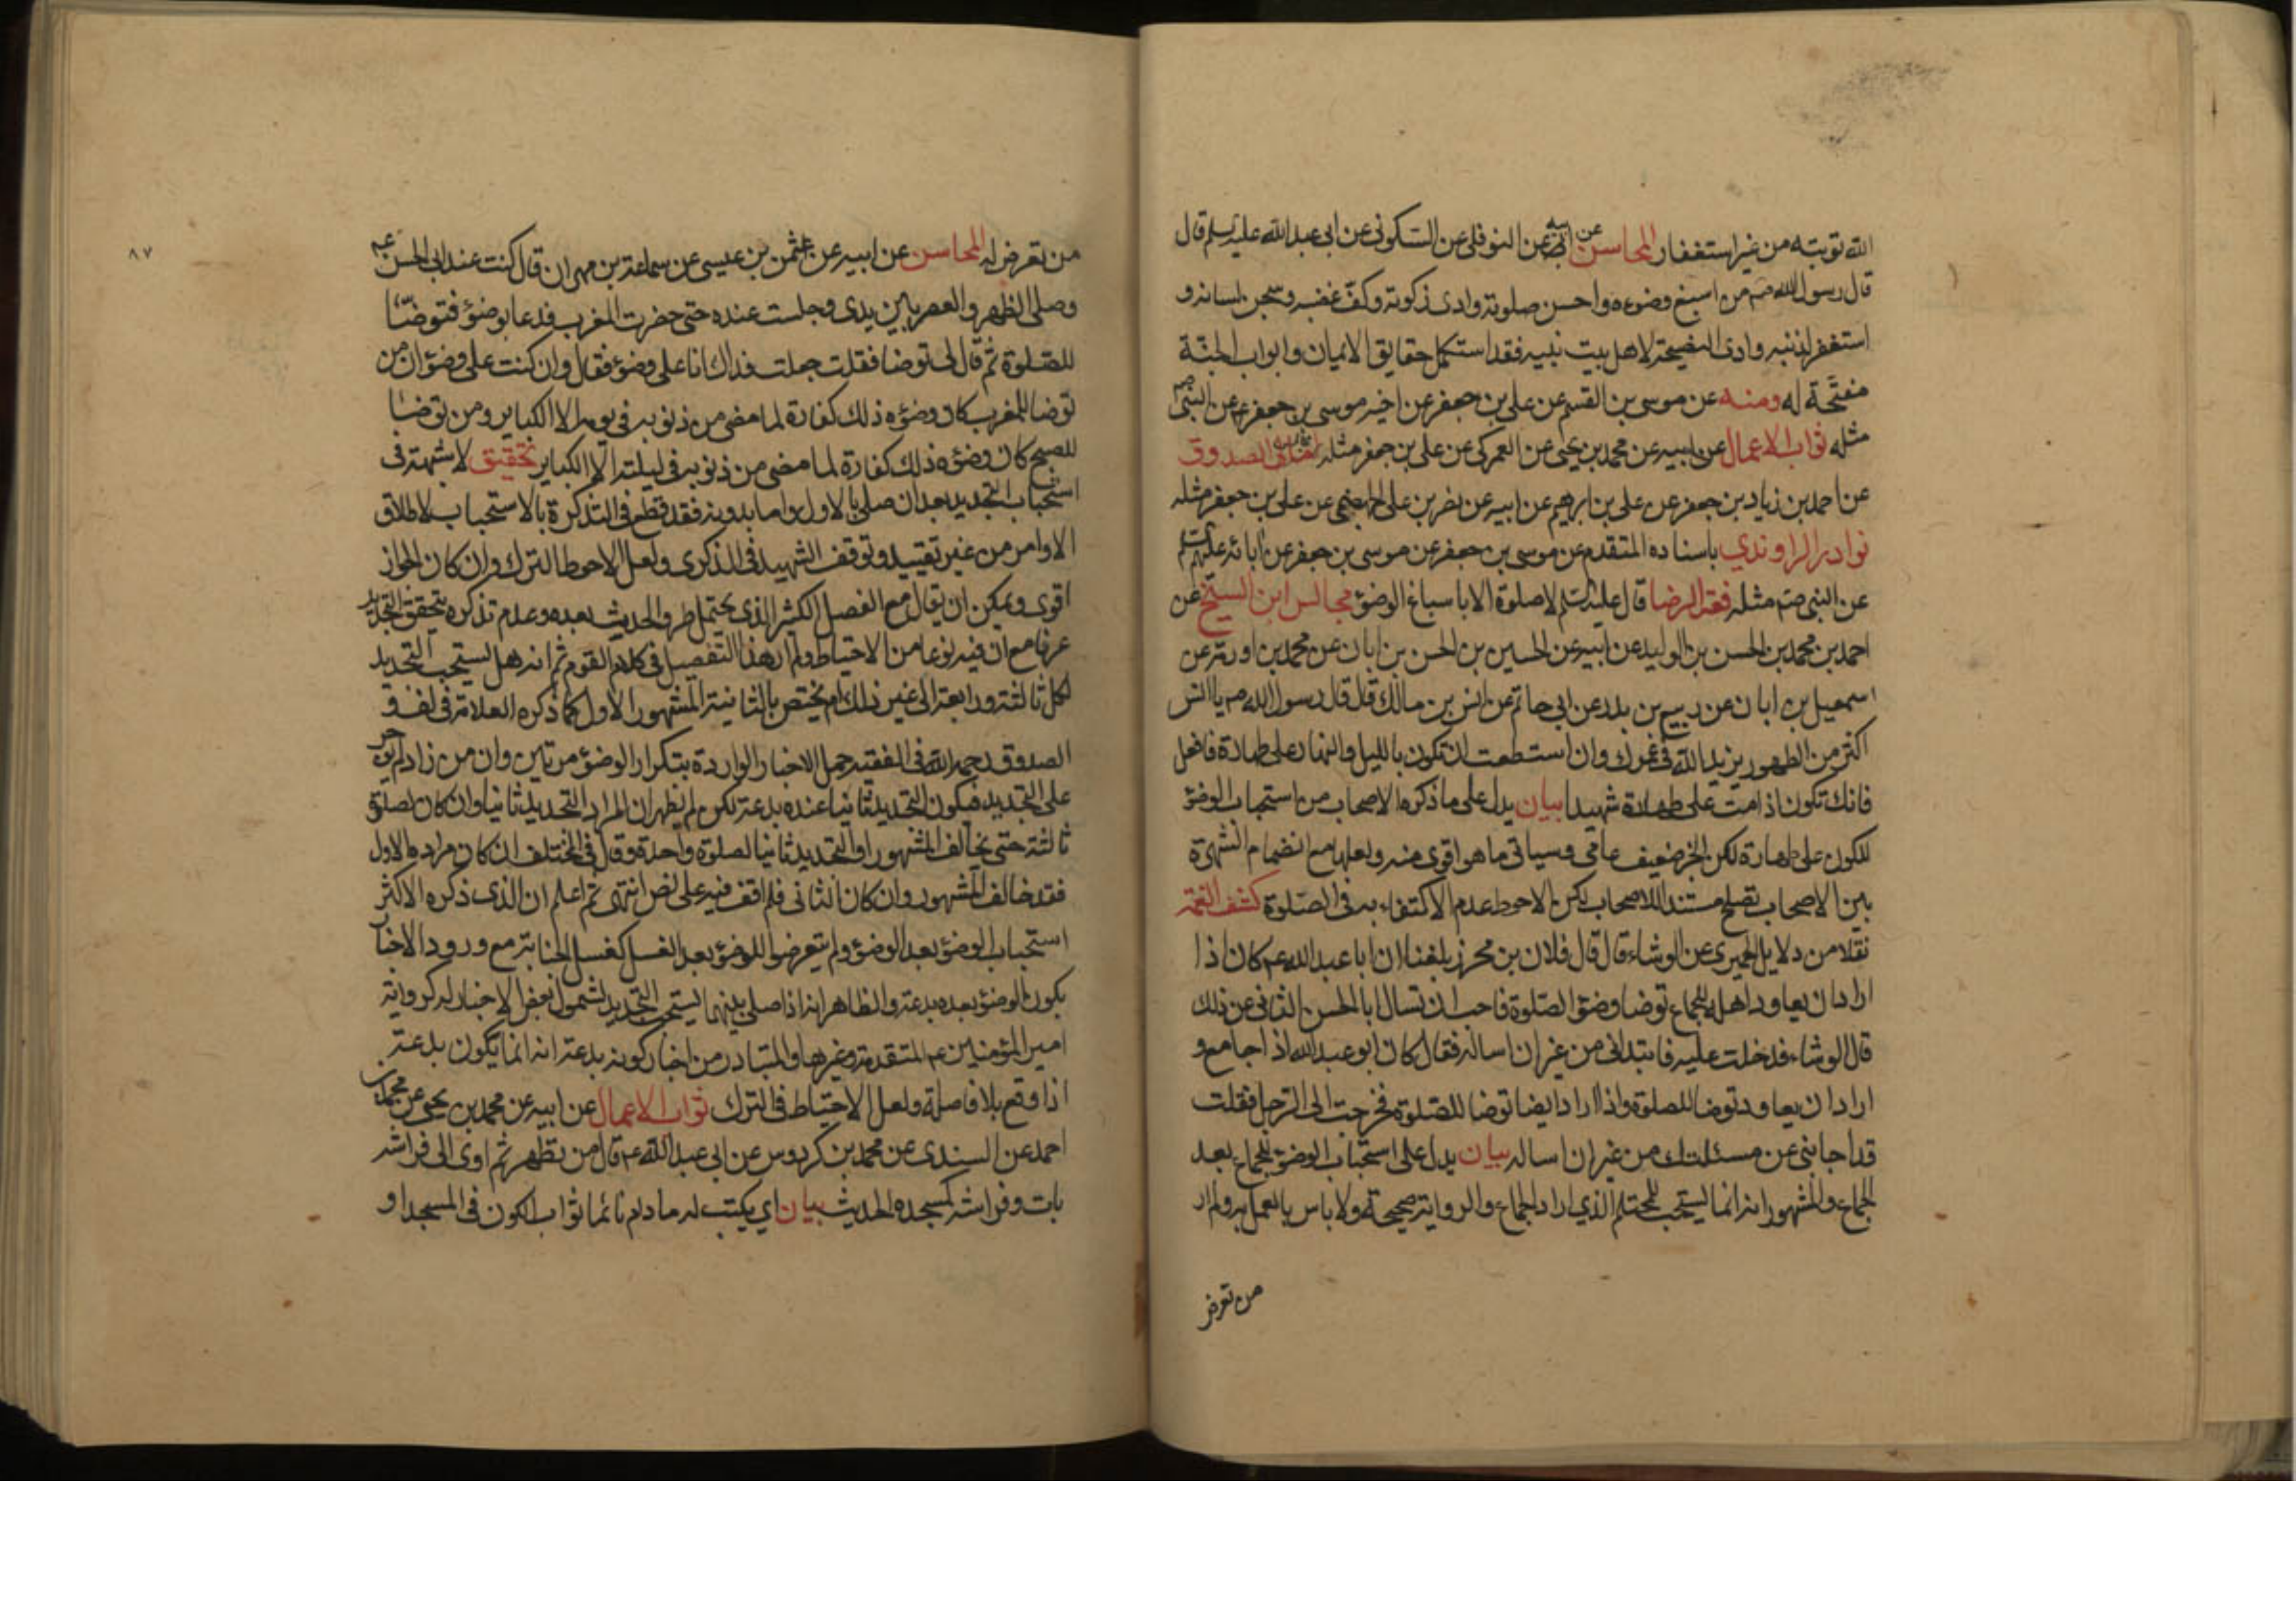 الله توبته من غير استغفار المحاسن عن ابيه عن النوفلى عن السكونى عن ابى عبد الله عليه السلم قال
قال رسول الله صم من اسبغ وضوءه واحسن صلوته وادى زكوته وكف غضبه وسجن لسانه و
استغفر لذنبه وادى النصيحة لاهل بيت نبيه فقد استكمل حقايق الايمان وابواب الجنة
مفتحة له ومنه عن موسى بن القسم عن على بن جعفر عن اخيه موسى بن جعفر ع عن النبى صم
مثله ثواب الاعمال عن ابيه عن محمد بن يحيى عن العمركى عن على بن جعفر مثله الصدوق
عن احمد بن زياد بن جعفر عن على بن ابرهيم عن ابيه عن نضر بن على الجهضمى عن على بن جعفر مثله
نوادر الراوندي باسناده المتقدم عن موسى بن جعفر عن موسى بن جعفر عن ابائه عليهم
عن النبى صم مثله فقه الرضا قال عليه السلم لا صلوة الا باسباغ الوضوء مجالس ابن الشيخ عن
احمد بن محمد بن الحسن بن الوليد عن ابيه عن الحسين بن الحسن بن ابان عن محمد بن اورمة عن
اسمعيل بن ابان عن ربيع بن بدر عن ابى حاتم عن انس بن مالك قال قال رسول الله صم يا انس
اكثر من الطهور يزيد الله فى عمرك وان استطعت ان تكون بالليل والنهار على طهارة فافعل
فانك تكون اذا مت على طهارة شهيدا بيان يدل على ما ذكره الاصحاب من استحباب الوضوء
للكون على طهارة لكن الخبر ضعيف عامى وسياتى ما هو اقوى منه ولعلها مع انضمام الشهرة
بين الاصحاب تصلح مستندا للاصحاب لكن الاحوط عدم الاكتفاء به فى الصلوة كشف الغمة
نقلا من دلايل الحميرى عن الوشاء قال قال فلان بن محرز بلغنا ان ابا عبد الله ع كان اذا
اراد ان يعاود اهله للجماع توضا وضوء الصلوة فاحب ان تسال ابا الحسن الثانى عن ذلك
قال الوشاء فدخلت عليه فابتدانى من غير ان اساله فقال كان ابو عبد الله اذا جامع و
اراد ان يعاود توضا للصلوة واذا اراد ايضا توضا للصلوة فخرجت الى الرجل فقلت
قد اجابنى عن مسئلتك من غير ان اساله بيان يدل على استحباب الوضوء للجماع بعد
الجماع والمشهور انه انما يستحب للمحتلم الذي اراد الجماع والرواية صحيحة ولا باس بالعمل به ولم ار
من تعرض
٨٧
من تعرض له المحاسن عن ابيه عن عثمن بن عيسى عن سماعة بن مهران قال كنت عند ابى الحسن ع
وصلى الظهر والعصر بين يدى وجلست عنده حتى حضرت المغرب فدعا بوضوء فتوضا
للصلوة ثم قال لى توضا فقلت جعلت فداك انا على وضوء فقال وان كنت على وضوء ان من
توضا للمغرب كان وضوءه ذلك كفارة لما مضى من ذنوبه فى يومه الا الكباير ومن توضا
للصبح كان وضوءه ذلك كفارة لما مضى من ذنوبه فى ليلته الا الكباير تحقيق لا شبهة فى
استحباب التجديد بعد ان صلى بالاول واما بدونه فقد قطع فى التذكرة بالاستحباب لاطلاق
الاوامر من غير تقييد وتوقف الشهيد فى الذكرى ولعل الاحوط الترك وان كان الجواز
اقوى ويمكن ان يقال مع الفصل الكثير الذى يحتمل طرو الحديث بعده وعدم تذكره يتحقق التجديد
عرفا مع ان فيه نوعا من الاحتياط ولم ار هذا التفصيل فى كلام القوم ثم انه هل يستحب التجديد
لكل ثالثة ورابعة الى غير ذلك ام يختص بالثانية المشهور الاول كما ذكره العلامة فى لف و
الصدوق رحمه الله فى الفقيه حمل الاخبار الواردة بتكرار الوضوء مرتين وان من زاد لم يؤجر
على التجديد فيكون التجديد ثانيا عنده بدعة لكن لم يظهر ان المراد التجديد ثانيا وان كان لصلوة
ثالثة حتى يخالف المشهور او التجديد ثانيا لصلوة واحدة وقال فى المختلف ان كان مراده الاول
فقد خالف المشهور وان كان الثانى فلم اقف فيه على نص انتهى ثم اعلم ان الذى ذكره الاكثر
استحباب الوضوء بعد الوضوء ولم يتعرضوا للوضوء بعد الغسل كغسل الجنابة مع ورود الاخبار
بكون الوضوء بعده بدعة والظاهر انه اذا صلى بينهما يستحب التجديد لشمول بعض الاخبار له كرواية
امير المؤمنين ع المتقدمة وغيرها والمتبادر من اخبار كونه بدعة انه انما يكون بدعة
اذا وقع بلا فاصلة ولعل الاحتياط فى الترك ثواب الاعمال عن ابيه عن محمد بن يحيى عن محمد بن
احمد عن السندى عن محمد بن كردوس عن ابى عبد الله ع قال من تطهر ثم اوى الى فراشه
بات وفراشه كمسجده الحديث بيان اي يكتب له ما دام نائما ثواب الكون فى المسجد او